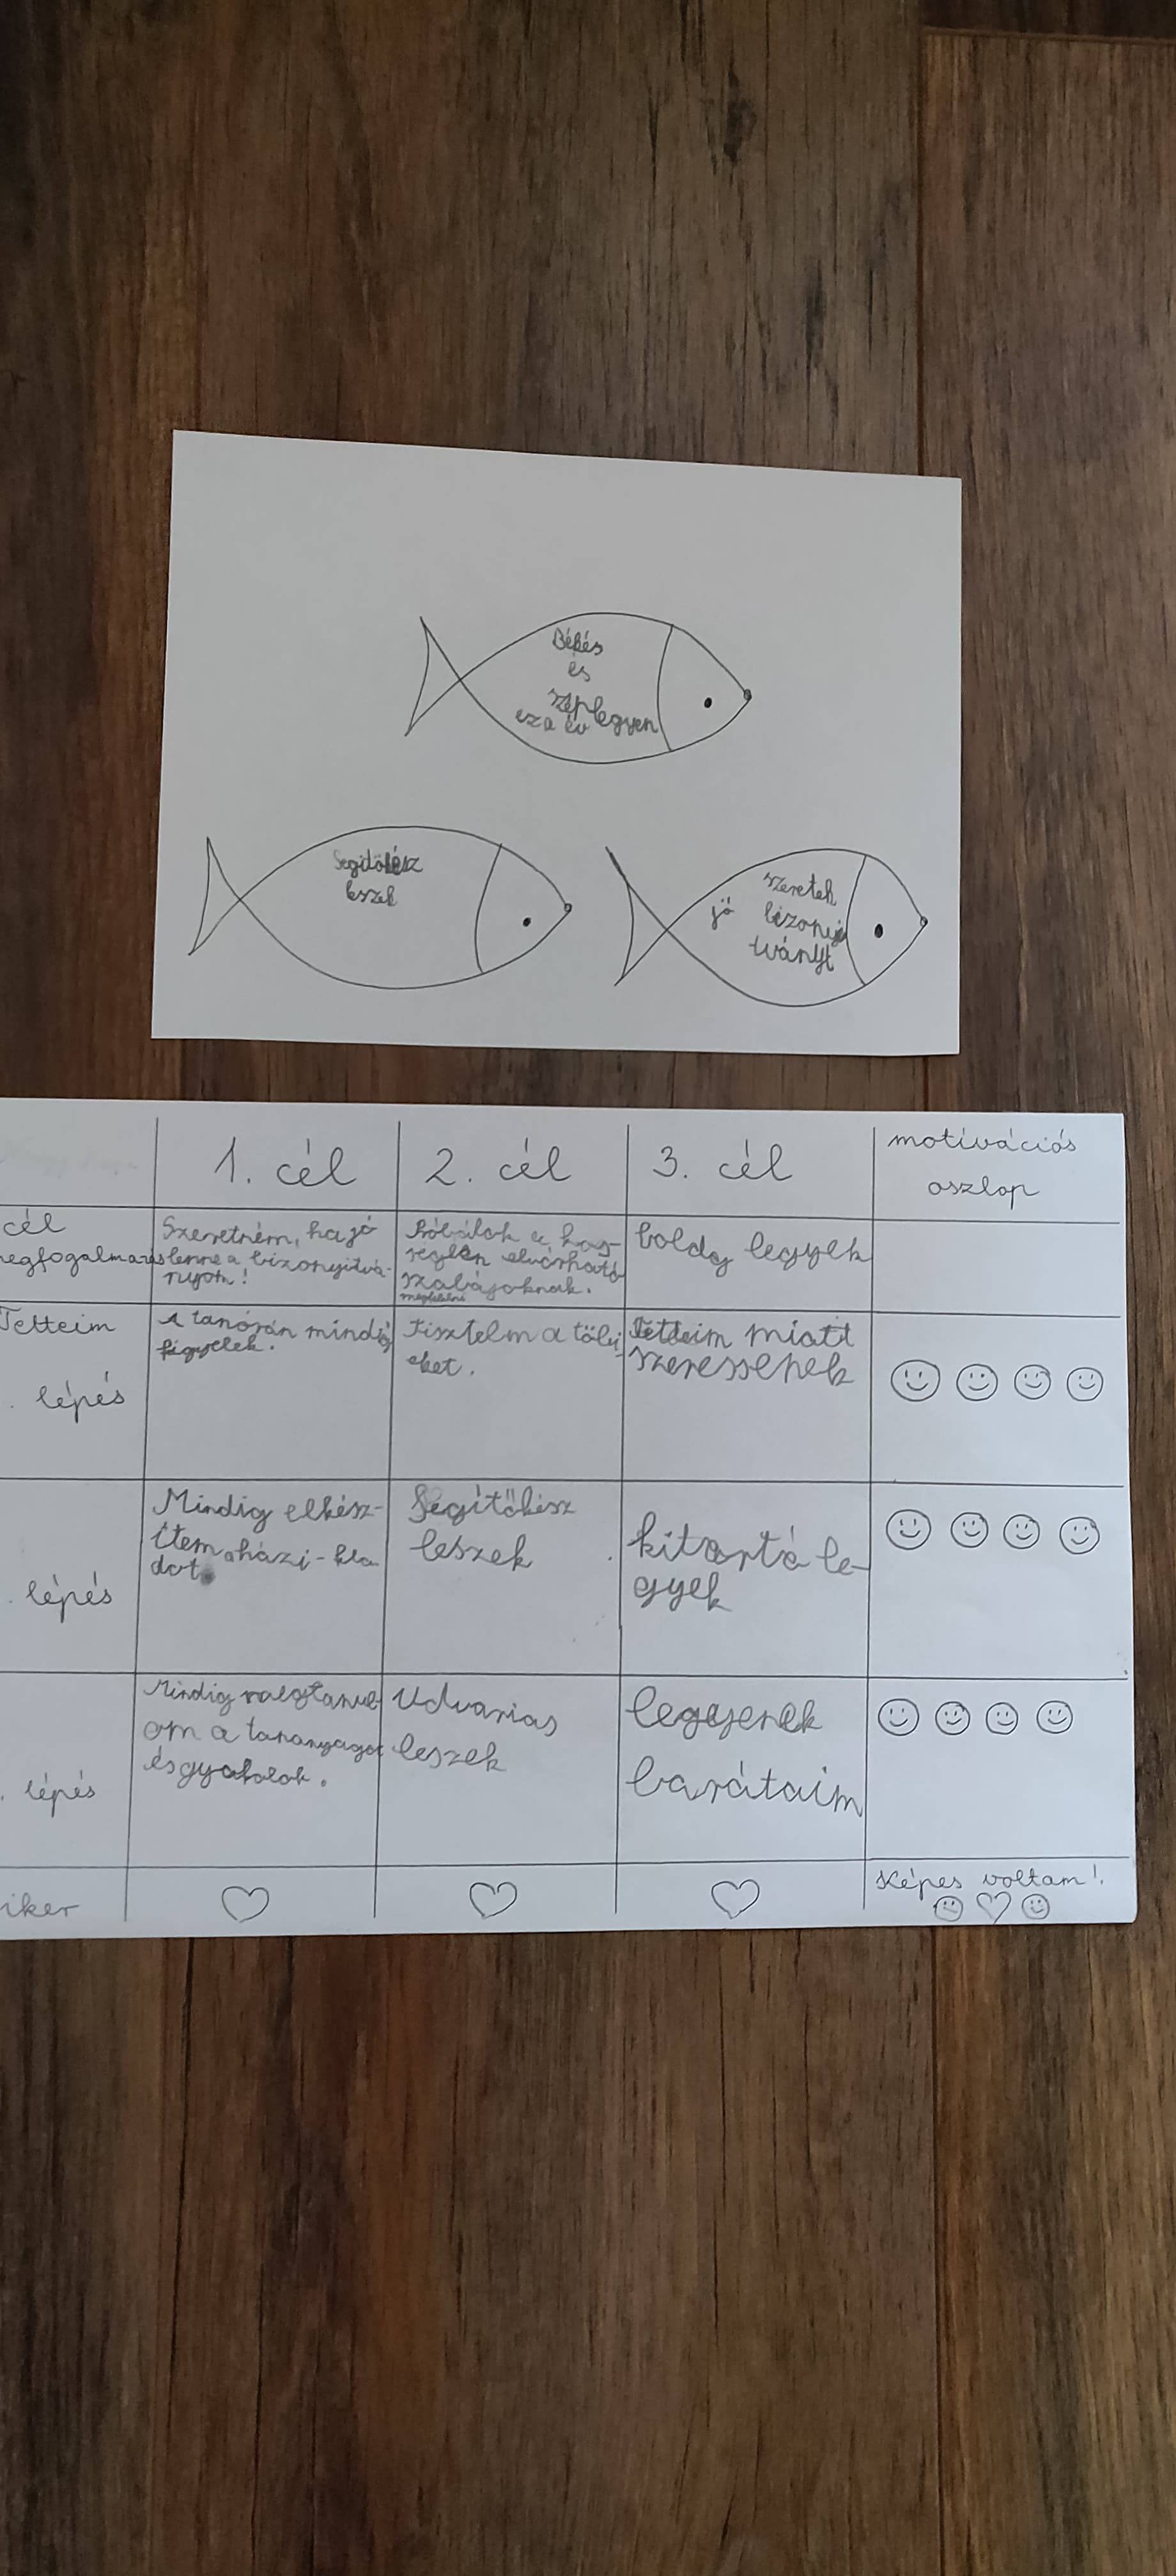 Békés
és
szép legyen
ez a év
Segitőkész
leszek
szeretek
jó bizonyi
tványt
1. cél
2. cél
3. cél
motivációs
oszlop
cél
egfogalmazás
Szeretném, ha jó
lenne a bizonyítvá-
nyom!
Próbálok a
elvárható
szabájoknak.
megfelelni
boldog legyek
Tetteim
. lépés
A tanórán mindig
figyelek.
Tisztelm a
eket.
Tetteim miatt
szeressenek
. lépés
Mindig elkész-
ítem a házi-
dot.
Segítőkész
leszek
kitartó le-
gyek
. lépés
Mindig
om a tananyagot
és gyakolok.
Udvarias
leszek
legyenek
barátaim
iker
Képes voltam!